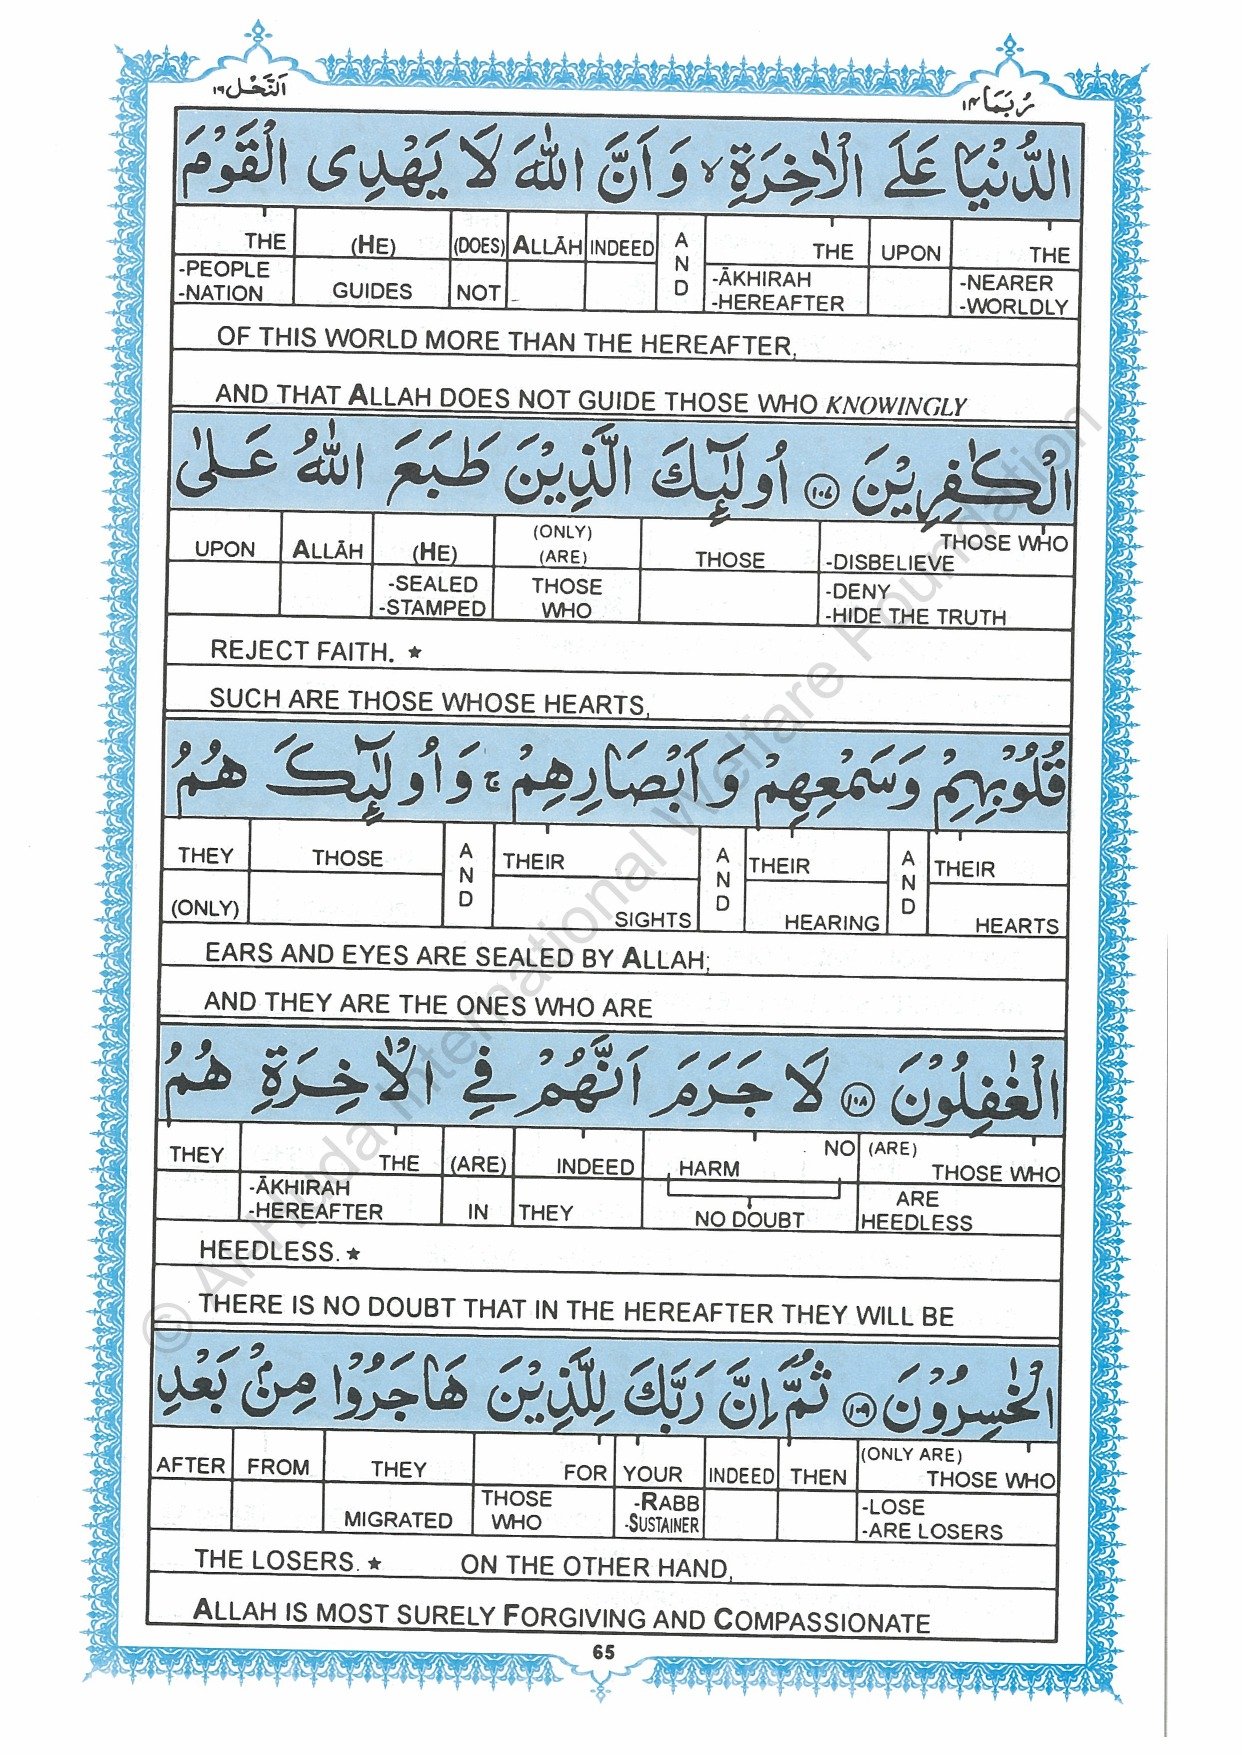 اَلنَّحْل ١٦
رُبَمَا ١٤
الدُّنْيَا عَلَى الْاٰخِرَةِ ۙ وَ اَنَّ اللّٰهَ لَا يَهْدِى الْقَوْمَ
THE (HE) (DOES) ALLĀH INDEED AND THE UPON THE
-PEOPLE GUIDES NOT -ĀKHIRAH -NEARER
-NATION -HEREAFTER -WORLDLY
OF THIS WORLD MORE THAN THE HEREAFTER,
AND THAT ALLAH DOES NOT GUIDE THOSE WHO KNOWINGLY
الْكٰفِرِيْنَ ١٠٧ اُولٰٓئِكَ الَّذِيْنَ طَبَعَ اللّٰهُ عَلٰى
UPON ALLĀH (HE) (ONLY) (ARE) THOSE THOSE WHO
-SEALED THOSE -DISBELIEVE
-STAMPED WHO -DENY
-HIDE THE TRUTH
REJECT FAITH. ★
SUCH ARE THOSE WHOSE HEARTS,
قُلُوْبِهِمْ وَ سَمْعِهِمْ وَ اَبْصَارِهِمْ ۚ وَ اُولٰٓئِكَ هُمُ
THEY THOSE AND THEIR AND THEIR AND THEIR
(ONLY) SIGHTS HEARING HEARTS
EARS AND EYES ARE SEALED BY ALLAH;
AND THEY ARE THE ONES WHO ARE
الْغٰفِلُوْنَ ١٠٨ لَا جَرَمَ اَنَّهُمْ فِي الْاٰخِرَةِ هُمُ
THEY THE (ARE) INDEED HARM NO (ARE) THOSE WHO
-ĀKHIRAH IN THEY NO DOUBT ARE
-HEREAFTER HEEDLESS
HEEDLESS. ★
THERE IS NO DOUBT THAT IN THE HEREAFTER THEY WILL BE
الْخٰسِرُوْنَ ١٠٩ ثُمَّ اِنَّ رَبَّكَ لِلَّذِيْنَ هَاجَرُوْا مِنْۢ بَعْدِ
AFTER FROM THEY FOR YOUR INDEED THEN (ONLY ARE) THOSE WHO
MIGRATED THOSE -RABB -LOSE
WHO -SUSTAINER -ARE LOSERS
THE LOSERS. ★ ON THE OTHER HAND,
ALLAH IS MOST SURELY FORGIVING AND COMPASSIONATE
65
© Al-Huda International Welfare Foundation